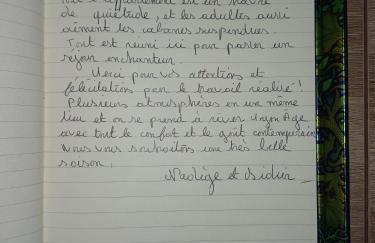 l'appartement est un havre
de quiétude, et les adultes aussi
aiment les cabanes suspendues.
Tout est réuni ici pour passer un
séjour enchanteur.
Merci pour vos attentions et
félicitations pour le travail réalisé !
Plusieurs atmosphères en un même
lieu et on se prend à rêver Moyen Âge
avec tout le confort et le goût contemporain
Nous vous souhaitons une très belle
saison.
Nadège et